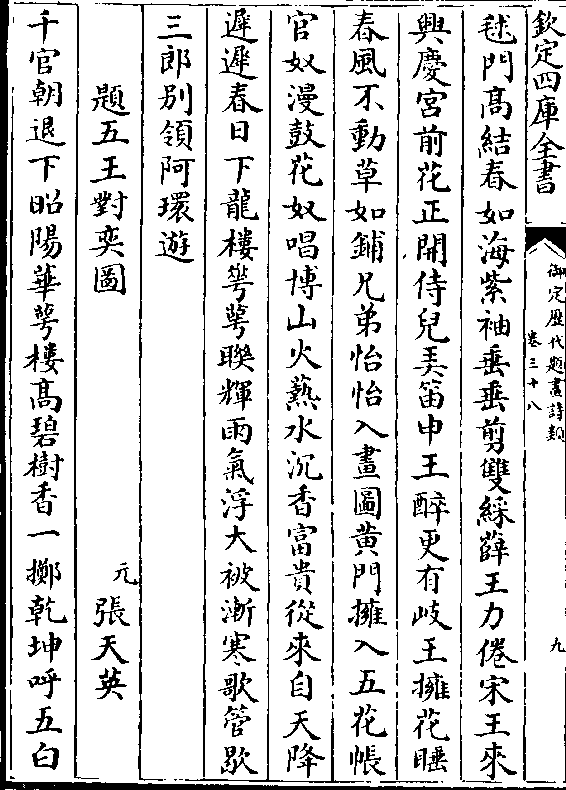 欽定四庫全書
御定歴代題畫詩類
卷三十八
九
毬門高結春如海紫袖垂垂剪雙綵薛王力倦宋王來
興慶宮前花正開侍兒美笛申王醉更有岐王擁花睡
春風不動草如鋪兄弟怡怡入畫圖黄門擁入五花帳
官奴漫鼓花奴唱博山火爇水沉香富貴從來自天降
遲遲春日下龍樓萼萼聨輝雨氣浮大被漸寒歌管歇
三郎别領阿環遊
題五王對奕圖
元張天英
千官朝退下昭陽華萼樓髙碧樹香一擲乾坤呼五白